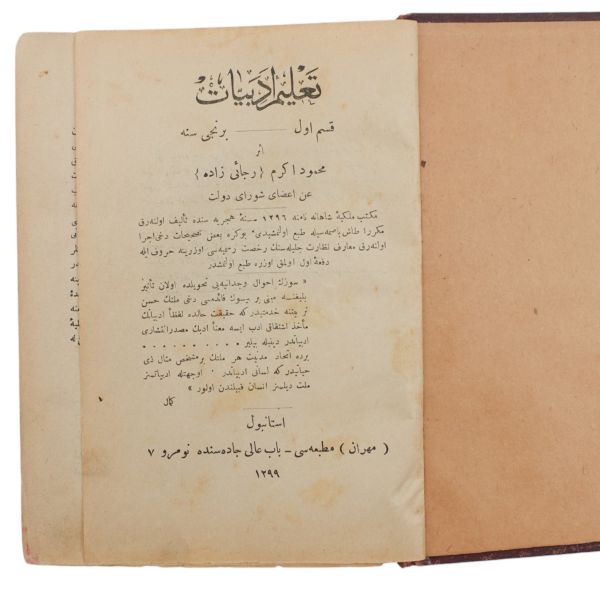 تعليم ادبيات
قسم اول — برنجى سنه
اثر
محمود اكرم { رجائى زاده }
عن اعضاى شوراى دولت
مكتب ملكيۀ شاهانه نامنه ١٢٩٦ سنۀ هجريه سنده تأليف اولنه رق
مكررا طاش باصمه سيله طبع اولنمشيدى بو كره بعض تصحيحات دخى اجرا
اولنه رق معارف نظارت جليله سنك رخصت رسميه سى اوزرينه حروف ايله
دفعۀ اول اولمق اوزره طبع اولنمشدر
« سوزك احوال وجدانيه يى تحويلده اولان تأثير
بليغنه مبنى بر بيوك فائده سى دخى ملتك حسن
تربيتنه خدمتيدر كه حقيقت حالده لفظاً ادبياتك
مأخذ اشتقاقى ادب ايسه معناً ادبك مصدر انتشارى
ادبياتدر دينيله بيلير . . . . . . . . .
برده اتحاد مدنيت هر ملتك بر مشخص مثال ذى
حياتيدر كه لسانى ادبياتدر . اوجهتله ادبياتسز
ملت ديلسز انسان قبيلندن اولور »
كمال
استانبول
( مهران ) مطبعه سى - باب عالى جاده سنده نومرو ٧
١٢٩٩